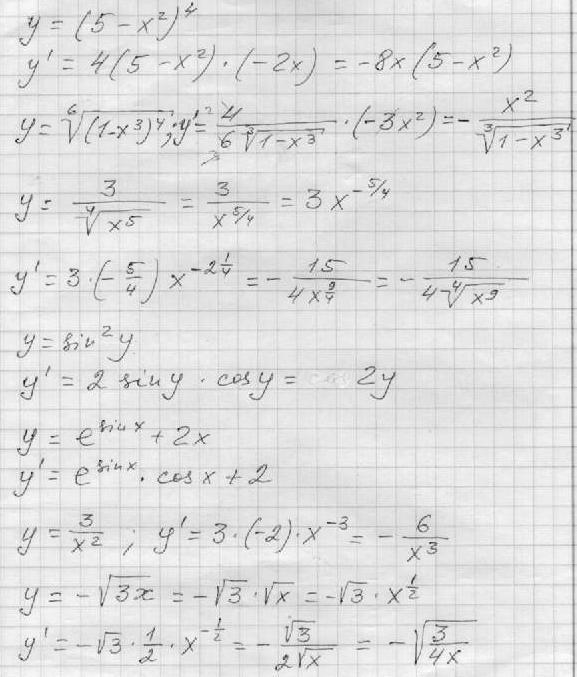 y = (5 - x²)⁴
y' = 4(5 - x²) · (-2x) = -8x(5 - x²)
y = ⁶√((1-x³)⁴); y' = 4² / (6 ³√(1-x³)) · (-3x²) = - x² / ³√(1-x³)
y = 3 / ⁴√(x⁵) = 3 / x^(5/4) = 3x^(-5/4)
y' = 3 · (-5/4) x^(-2 1/4) = - 15 / (4x^(9/4)) = - 15 / (4 ⁴√(x⁹))
y = sin² y
y' = 2 sin y · cos y = cos 2y
y = e^(sin x) + 2x
y' = e^(sin x) · cos x + 2
y = 3/x² ; y' = 3 · (-2) · x^(-3) = - 6/x³
y = -√(3x) = -√3 · √x = -√3 · x^(1/2)
y' = -√3 · 1/2 · x^(-1/2) = - √3 / (2√x) = -√(3/(4x))